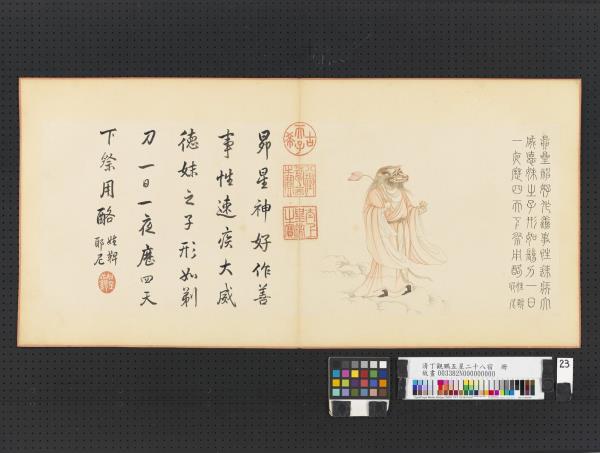 昴星神好作善事性速疾大
威德妹之子形如剃刀一日
一夜歷四天下祭用酪
姓鞞
耶尼
古希天子
太上皇帝之寶
昴星神好作善
事性速疾大威
德妹之子形如剃
刀一日一夜歷四天
下祭用酪
姓鞞
耶尼
清丁觀鵬五星二十八宿 冊
故畫 003382N000000000
23